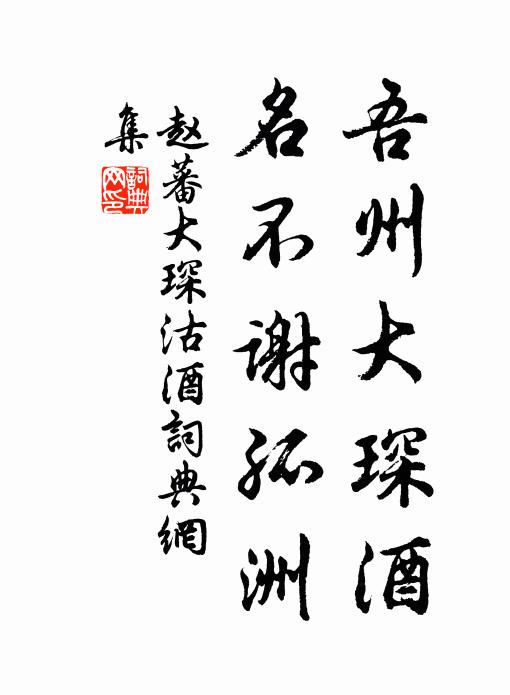 吾州大琛酒
名不谢孤洲
赵蕃大琛沽酒詞典網
集
詞典网印